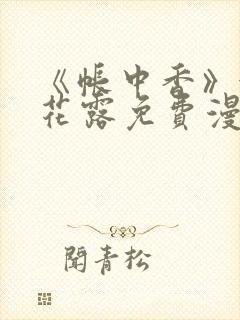 《帐中香》
花露免費漫
聞青松